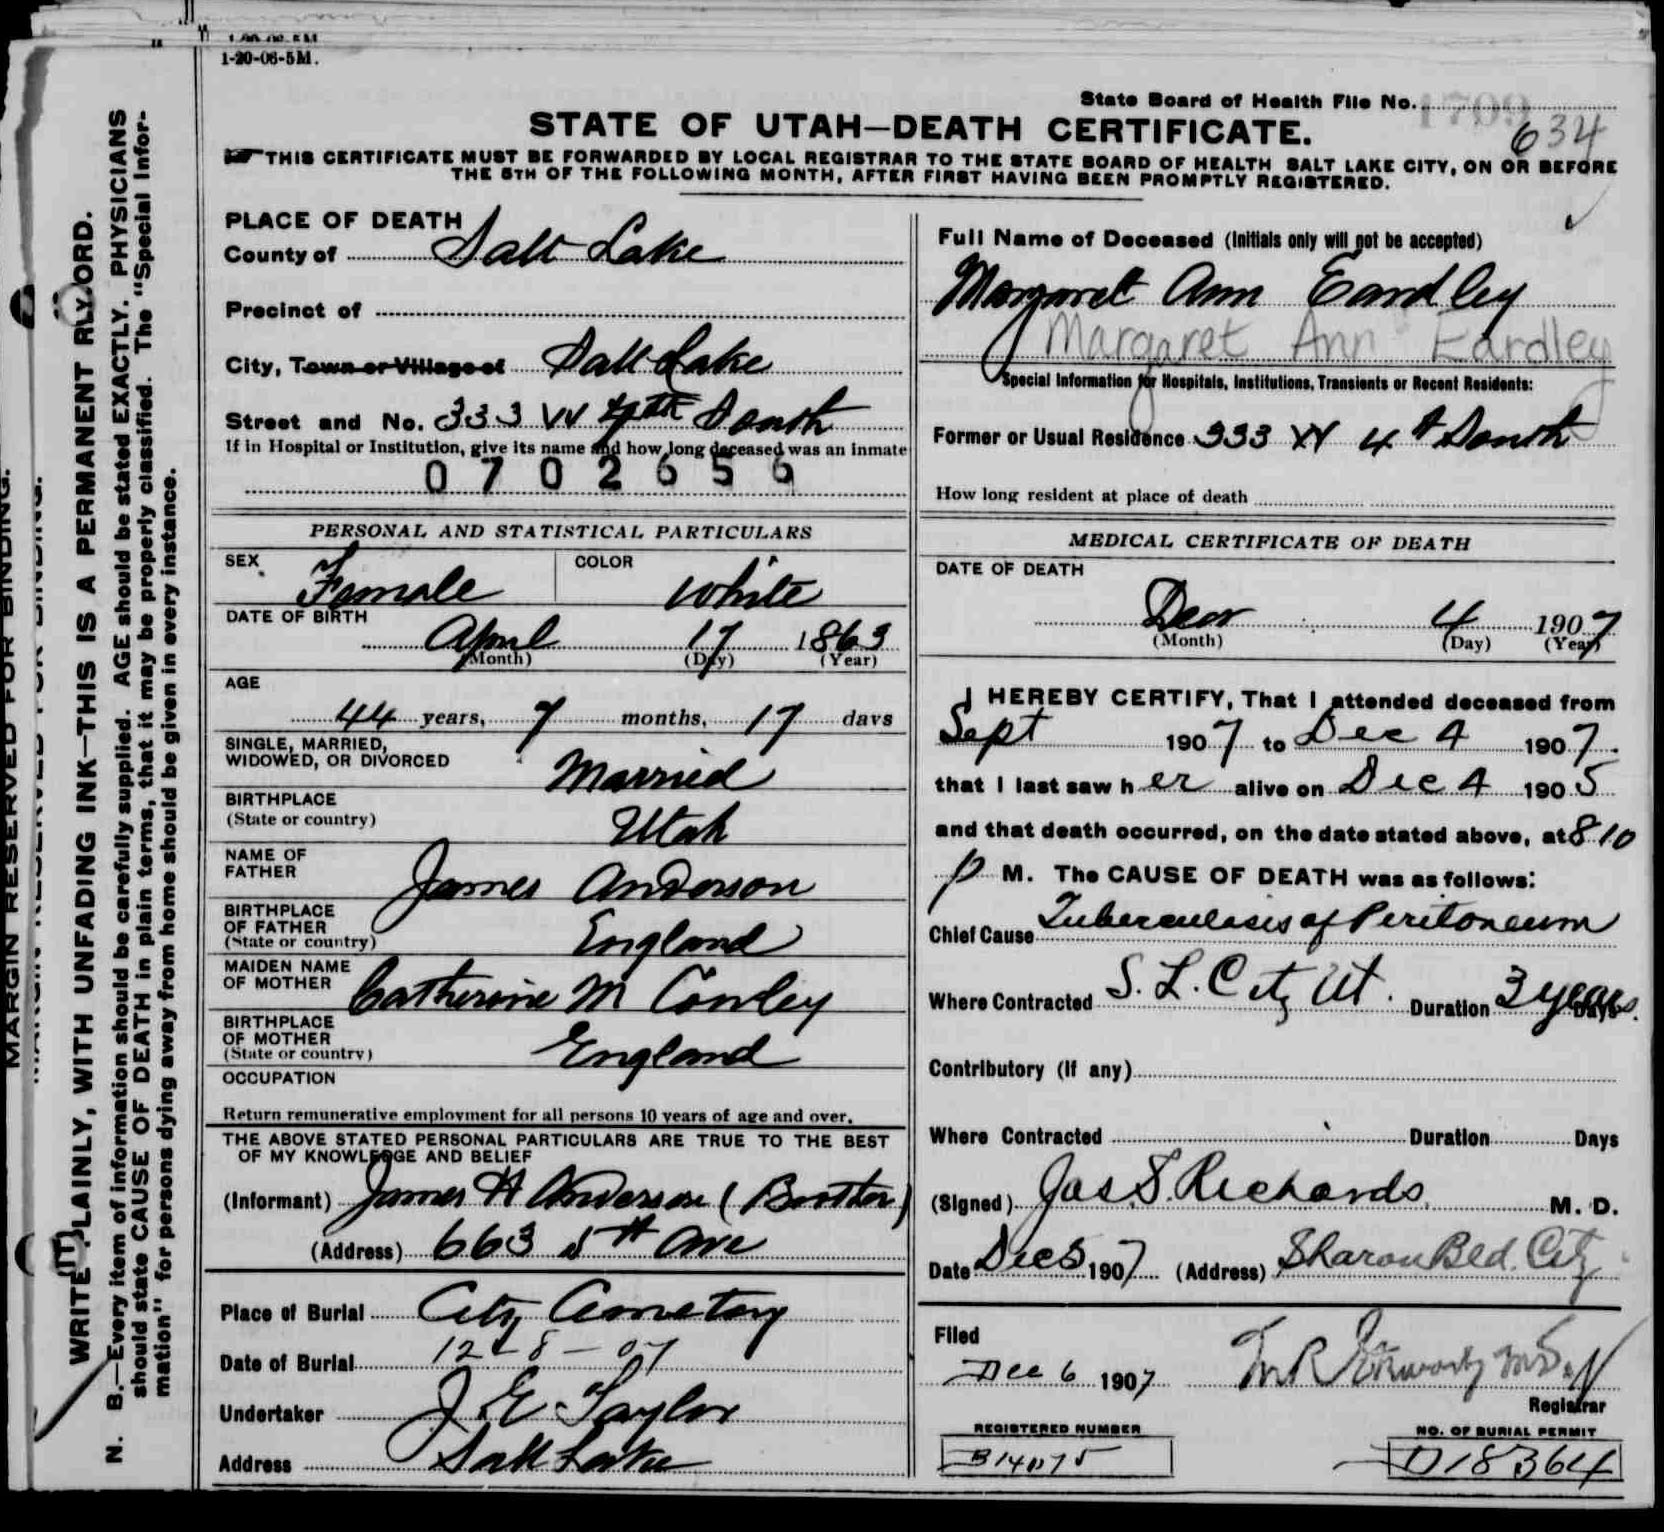 1-20-06-5M.
State Board of Health File No. 1709
634
STATE OF UTAH—DEATH CERTIFICATE.
THIS CERTIFICATE MUST BE FORWARDED BY LOCAL REGISTRAR TO THE STATE BOARD OF HEALTH SALT LAKE CITY, ON OR BEFORE
THE 5TH OF THE FOLLOWING MONTH, AFTER FIRST HAVING BEEN PROMPTLY REGISTERED.
PLACE OF DEATH
County of Salt Lake
Precinct of
City, Town or Village of Salt Lake
Street and No. 333 W 4th South
If in Hospital or Institution, give its name and how long deceased was an inmate
0702656
PERSONAL AND STATISTICAL PARTICULARS
SEX Female COLOR White
DATE OF BIRTH
April 17 1863
(Month) (Day) (Year)
AGE
44 years, 7 months, 17 days
SINGLE, MARRIED,
WIDOWED, OR DIVORCED Married
BIRTHPLACE
(State or country) Utah
NAME OF
FATHER James Anderson
BIRTHPLACE
OF FATHER
(State or country) England
MAIDEN NAME
OF MOTHER Catherine M Cowley
BIRTHPLACE
OF MOTHER
(State or country) England
OCCUPATION
Return remunerative employment for all persons 10 years of age and over.
THE ABOVE STATED PERSONAL PARTICULARS ARE TRUE TO THE BEST
OF MY KNOWLEDGE AND BELIEF
(Informant) James H Anderson (Brother)
(Address) 663 5th Ave
Place of Burial City Cemetery
Date of Burial 12-8-07
Undertaker J E Taylor
Address Salt Lake
Full Name of Deceased (Initials only will not be accepted)
Margaret Ann Eardley
Margaret Ann Eardley
Special Information for Hospitals, Institutions, Transients or Recent Residents:
Former or Usual Residence 333 W 4th South
How long resident at place of death
MEDICAL CERTIFICATE OF DEATH
DATE OF DEATH
Dec 4 1907
(Month) (Day) (Year)
I HEREBY CERTIFY, That I attended deceased from
Sept 1907 to Dec 4 1907.
that I last saw her alive on Dec 4 1905
and that death occurred, on the date stated above, at 8 10
p M. The CAUSE OF DEATH was as follows:
Chief Cause Tuberculosis of Peritoneum
Where Contracted S. L. City Ut. Duration 3 years. Days
Contributory (If any)
Where Contracted Duration Days
(Signed) Jas S. Richards M. D.
Date Dec 5 1907 (Address) Sharon Bld. City
Filed
Dec 6 1907
Registrar
REGISTERED NUMBER
B14075
NO. OF BURIAL PERMIT
D18364
MARGIN RESERVED FOR BINDING.
MARGIN RESERVED FOR BINDING.
WRITE PLAINLY, WITH UNFADING INK—THIS IS A PERMANENT RECORD.
N. B.—Every item of information should be carefully supplied. AGE should be stated EXACTLY. PHYSICIANS
should state CAUSE OF DEATH in plain terms, that it may be properly classified. The "Special Infor-
mation" for persons dying away from home should be given in every instance.